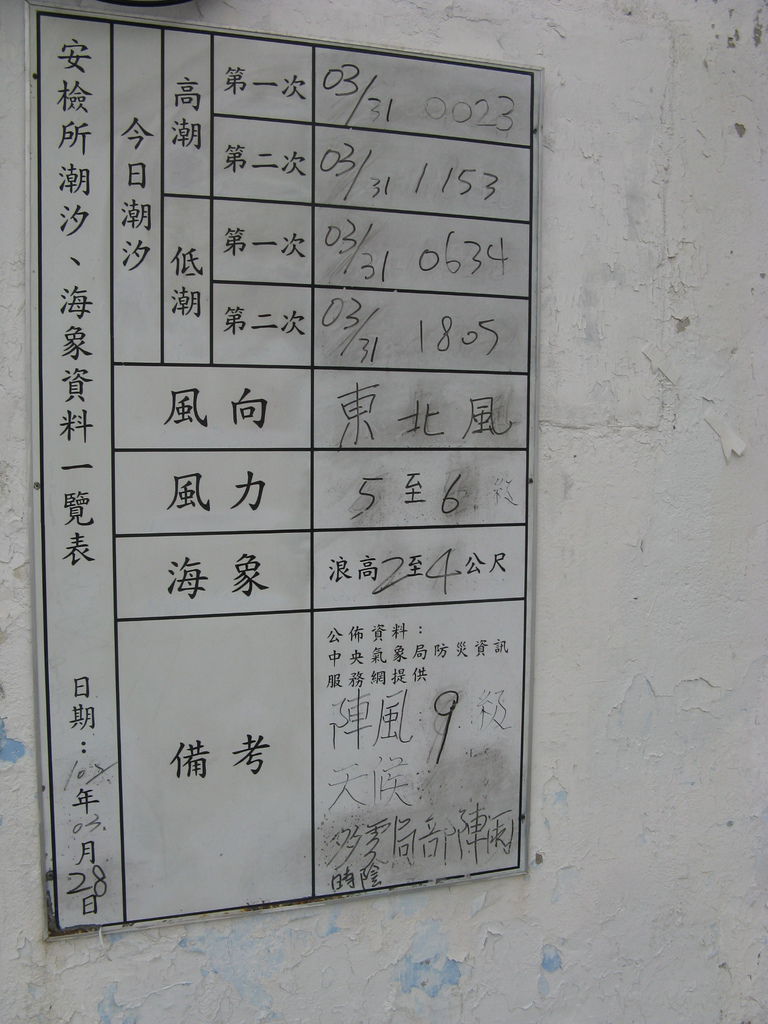 安檢所潮汐、海象資料一覽表
日期：102年03月28日
今日潮汐
高潮
第一次 03/31 0023
第二次 03/31 1153
低潮
第一次 03/31 0634
第二次 03/31 1805
風向 東北風
風力 5至6級
海象 浪高2至4公尺
備考
公佈資料：
中央氣象局防災資訊
服務網提供
陣風9級
天候
多雲局部陣雨
時陰